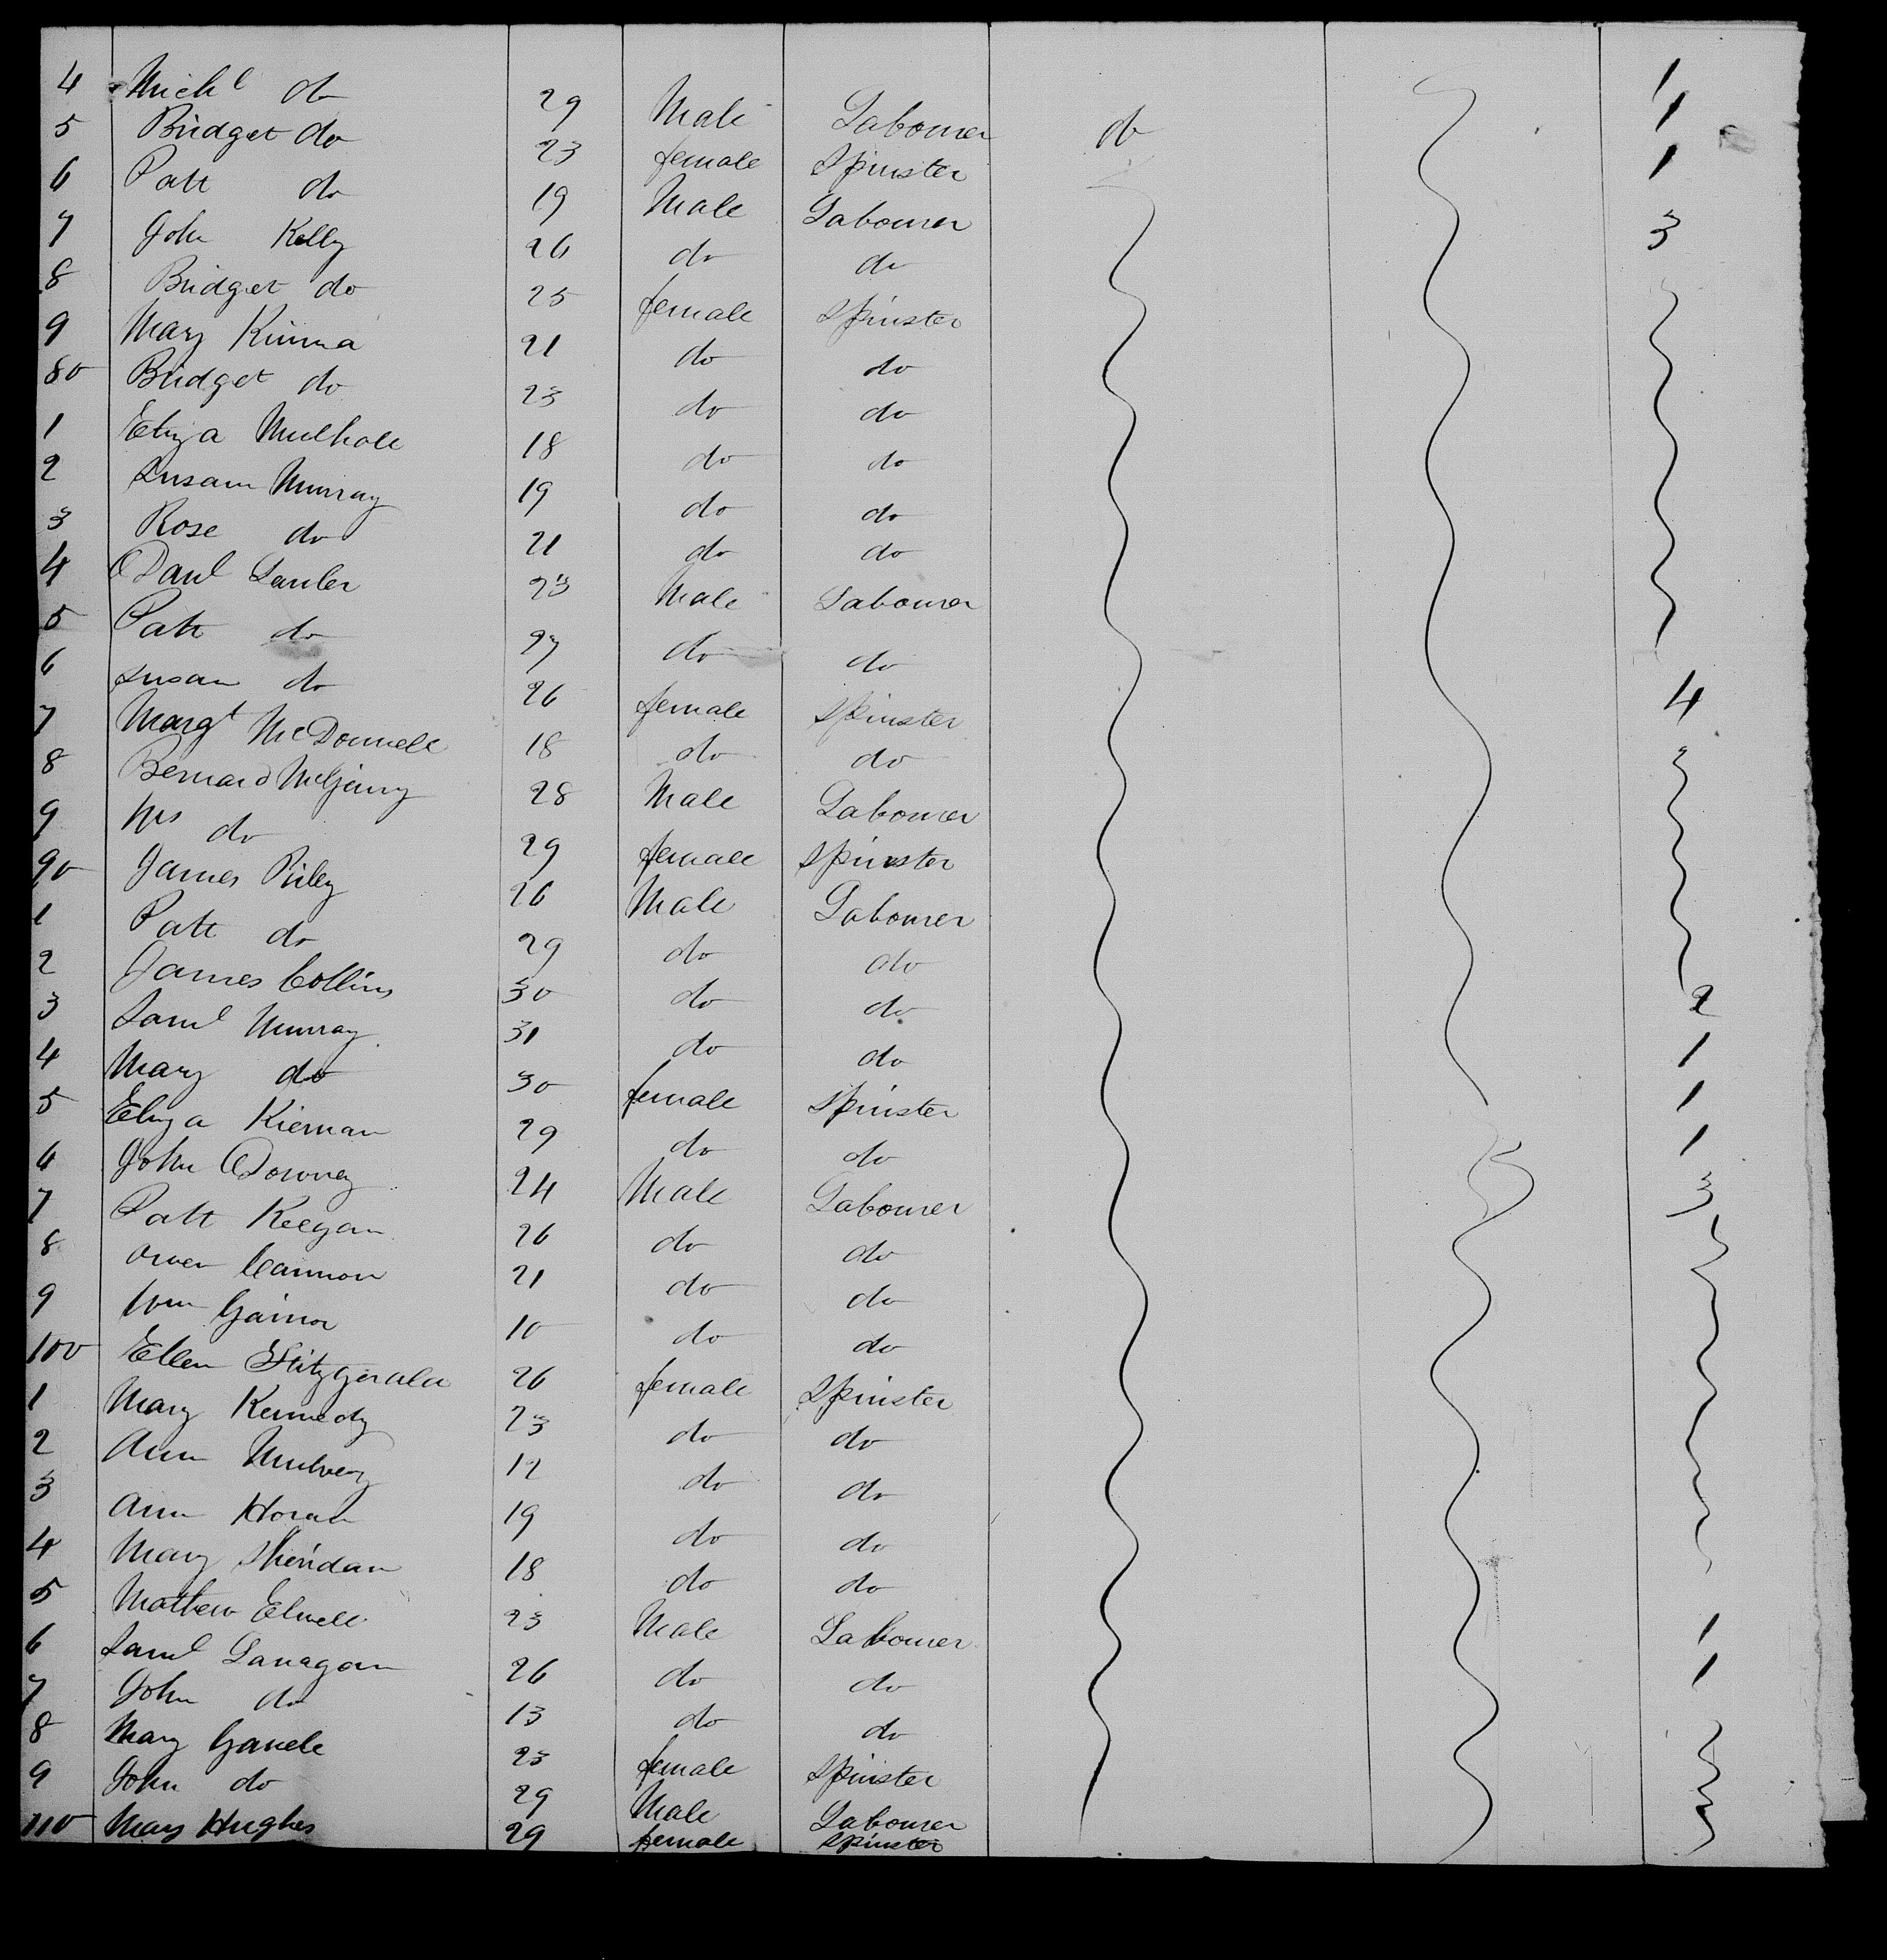 4 Michl do 29 Male Labourer do 1
5 Bridget do 23 female Spinster 1
6 Patt do 19 Male Labourer 1
7 John Kelly 26 do do 3
8 Bridget do 25 female Spinster
9 Mary Kinna 21 do do
80 Bridget do 23 do do
1 Eliza Mulhall 18 do do
2 Susan Murray 19 do do
3 Rose do 21 do do
4 Danl Lawler 23 Male Labourer
5 Patt do 27 do do
6 Susan do 26 female Spinster 4
7 Margt McDonnell 18 do do
8 Bernard 28 Male Labourer
9 Mrs do 29 female Spinster
90 James Riley 26 Male Labourer
1 Patt do 29 do do
2 James Collins 30 do do 2
3 Saml Murray 31 do do 1
4 Mary do 30 female Spinster 1
5 Eliza Kiernan 29 do do 1
6 John Downey 24 Male Labourer 3
7 Patt Keegan 26 do do
8 Owen Cannon 21 do do
9 Wm Gainor 10 do do
100 Ellen Fitzgerald 26 female Spinster
1 Mary Kennedy 23 do do
2 Ann Mulvey 12 do do
3 Ann Horan 19 do do
4 Mary Sheridan 18 do do
5 Mathew 23 Male Labourer 1
6 Saml Lanagan 26 do do 1
7 John do 13 do do
8 Mary 23 female Spinster
9 John do 29 Male Labourer
110 Mary Hughes 29 female Spinster